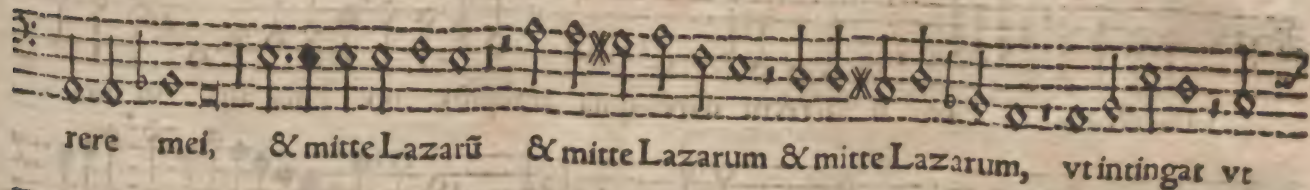 rere mei, & mitte Lazarũ & mitte Lazarum & mitte Lazarum, vt intingat vt